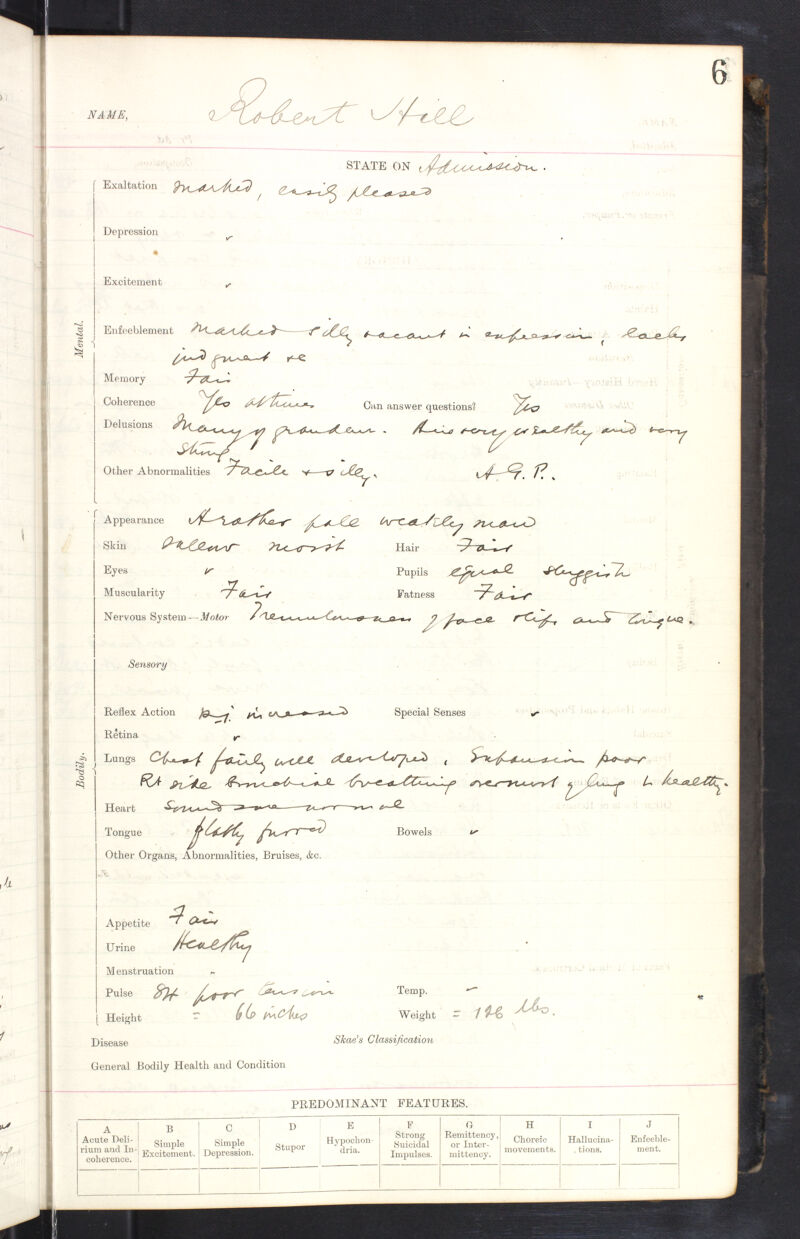 6
NAME, Robert Hill
STATE ON Admission.
Mental.
Exaltation Marked, easily pleased
Depression
Excitement
Enfeeblement Marked silly vacant in expression, lacks
judgment &c
Memory Fair
Coherence Yes at times Can answer questions? Yes
Delusions Many of grandeur. Is very wealthy and very
strong
Other Abnormalities Facile & silly. A. G. P..
Bodily.
Appearance A rather pale weakly man
Skin Sallow moist Hair Fair
Eyes Pupils equal sluggish
Muscularity Fair Fatness Fair
Nervous System—Motor Tremulousness of face lips and tongue.
Sensory
Reflex Action k-j. increased Special Senses
Retina
Lungs Chest fairly well developed, Expansion poor
Rt side bronchial breathing over most of lung is healthy.
Heart Sounds are normal
Tongue flabby furred Bowels
Other Organs, Abnormalities, Bruises, &c.
Appetite Fair
Urine Healthy
Menstruation
Pulse 84 poor tension Temp. -
Height = 66 inches Weight = 126 lbs.
Disease Skae's Classification
General Bodily Health and Condition
PREDOMINANT FEATURES.
A B C D E F G H I J
Acute Delirium and Incoherence. Simple Excitement. Simple Depression. Stupor Hypochondria. Strong Suicidal Impulses. Remittency, or Intermittency. Choreic movements. Hallucinations. Enfeeblement.